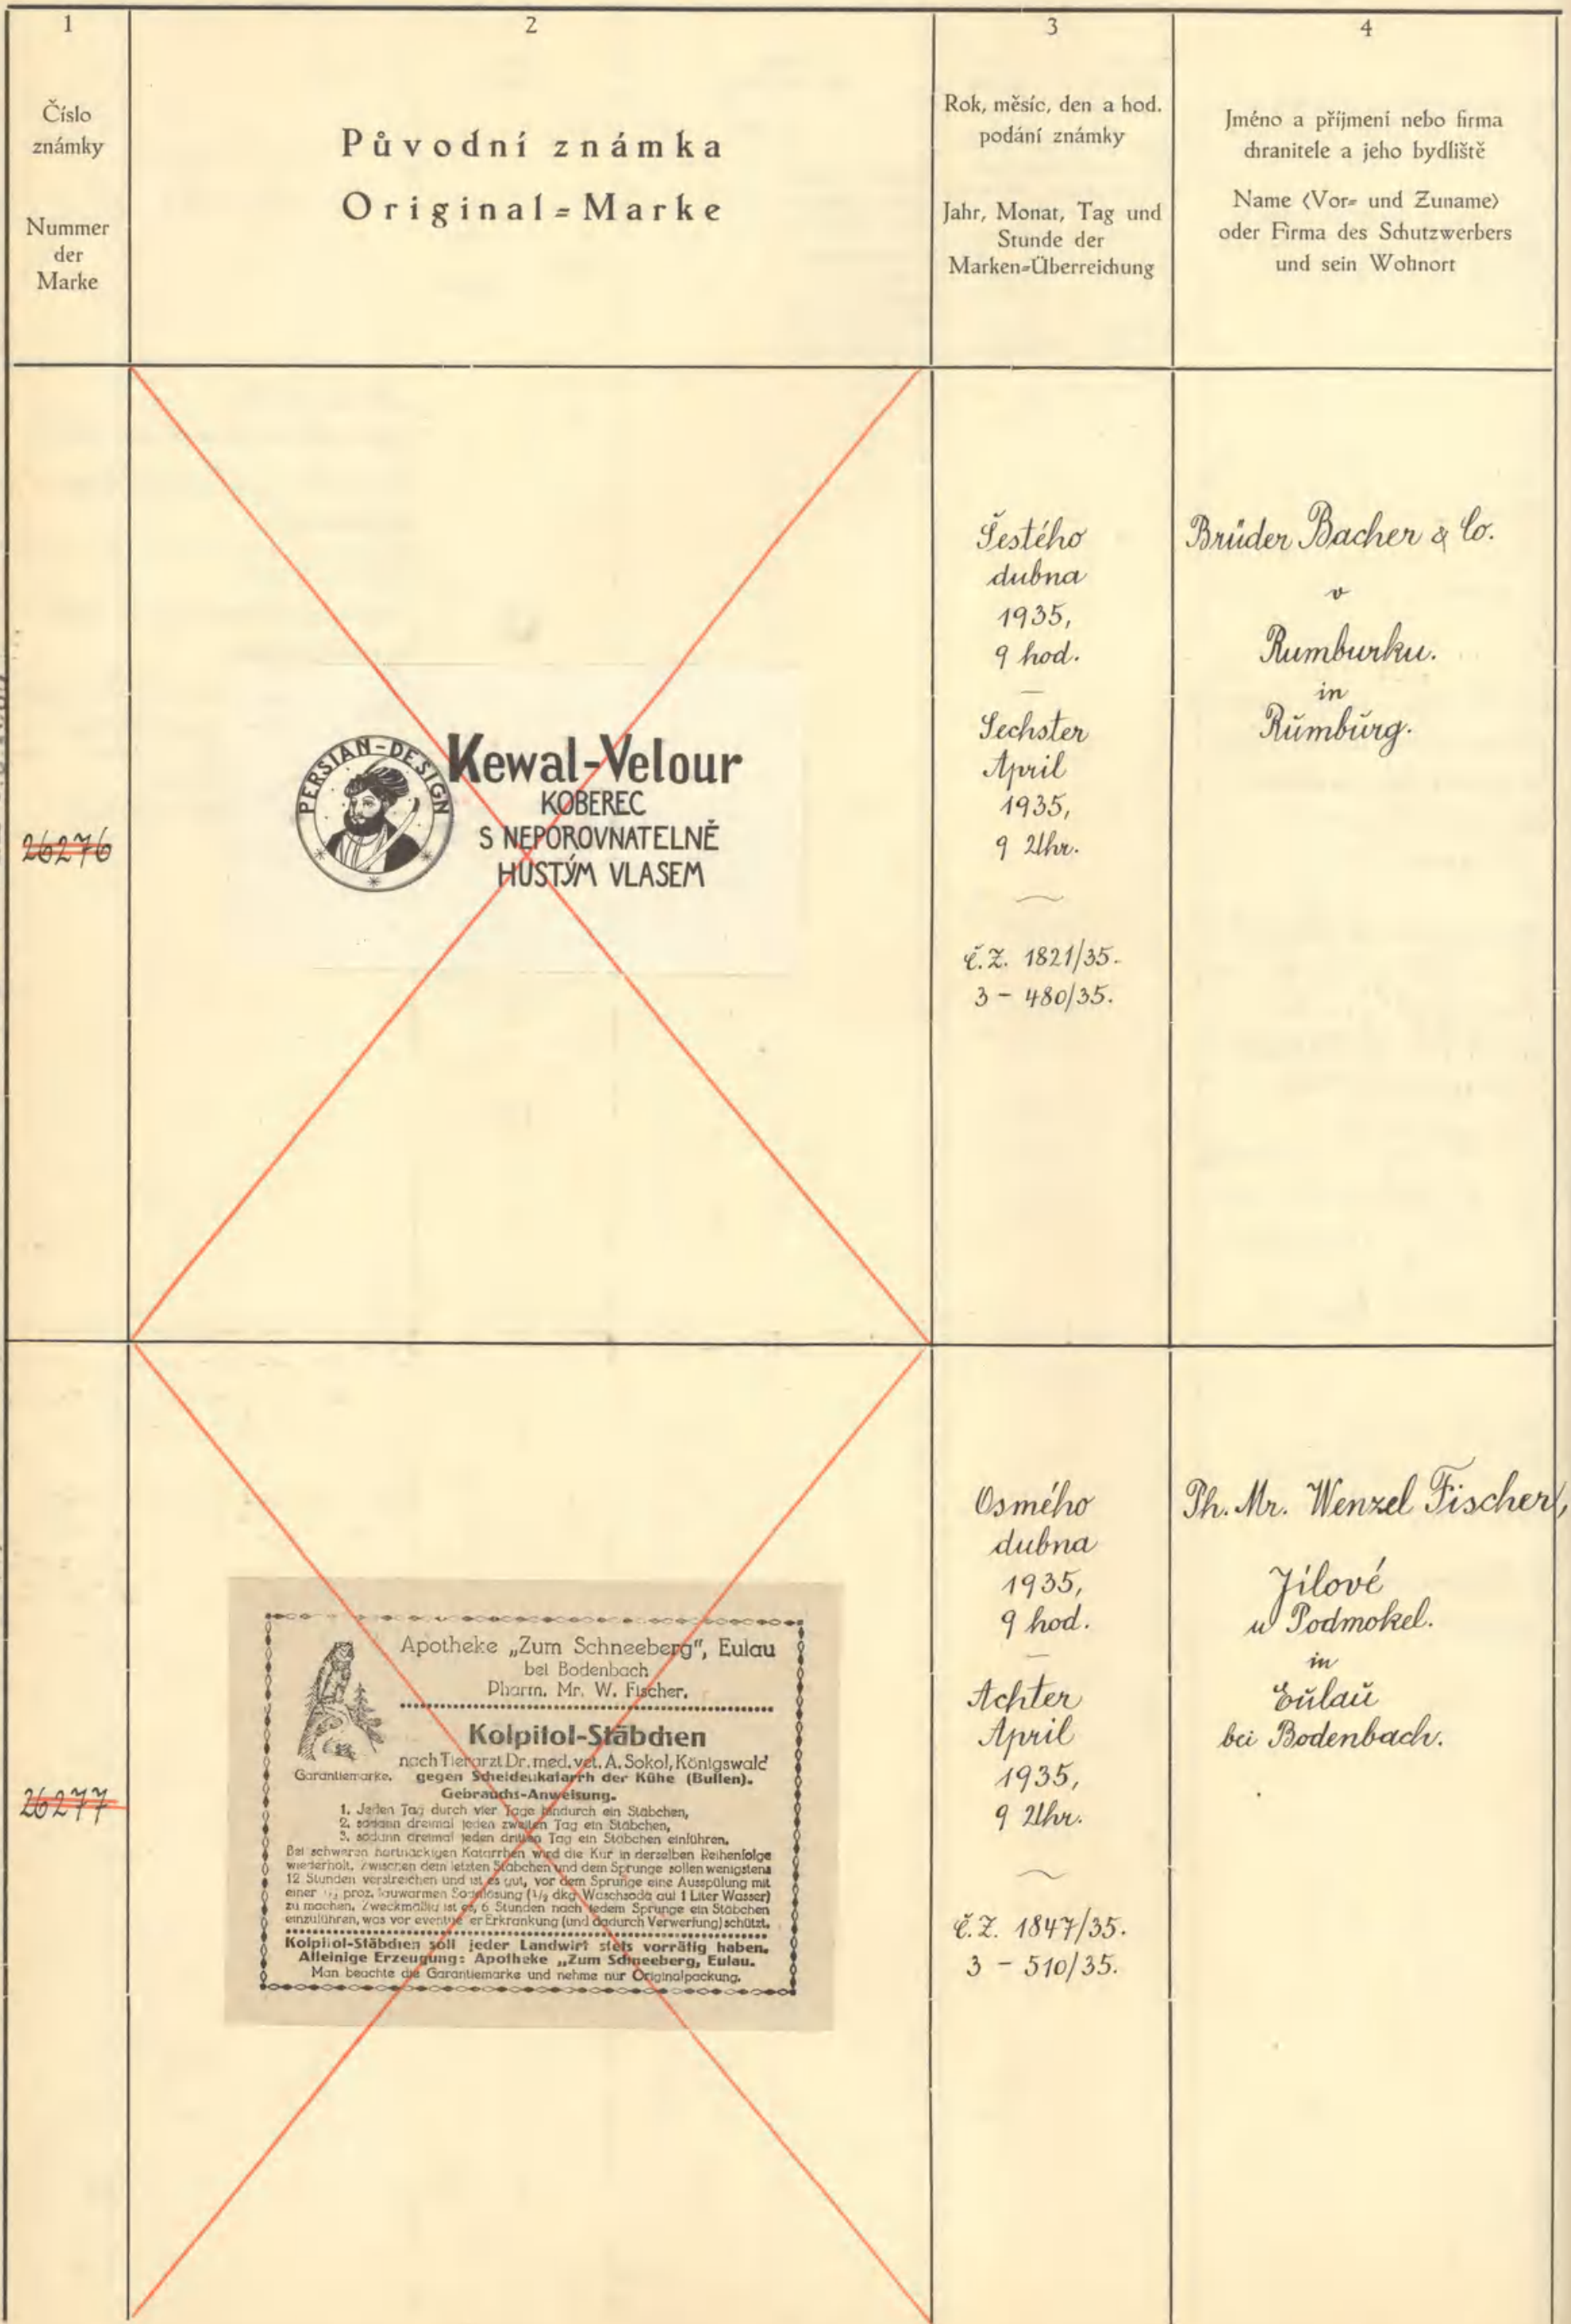 1
Číslo
známky
Nummer
der
Marke
2
Původní známka
Original=Marke
3
Rok, měsíc, den a hod.
podání známky
Jahr, Monat, Tag und
Stunde der
Marken=Überreichung
4
Jméno a příjmení nebo firma
chranitele a jeho bydliště
Name (Vor= und Zuname)
oder Firma des Schutzwerbers
und sein Wohnort
26276
PERSIAN-DESIGN
Kewal-Velour
KOBEREC
S NEPOROVNATELNĚ
HUSTÝM VLASEM
Šestého
dubna
1935,
9 hod.
Sechster
April
1935,
9 Uhr.
č.Z. 1821/35.
3 - 480/35.
Brüder Bacher & Co.
v
Rumburku.
in
Rŭmbŭrg.
26277
Apotheke „Zum Schneeberg", Eulau
bei Bodenbach
Pharm. Mr. W. Fischer.
Kolpitol-Stäbchen
nach Tierarzt Dr. med. vet. A. Sokol, Königswald
Garantiemarke. gegen Scheidenkatarrh der Kühe (Bullen).
Gebrauchs-Anweisung.
1. Jeden Tag durch vier Tage hindurch ein Stäbchen,
2. sodann dreimal jeden zweiten Tag ein Stäbchen,
3. sodann dreimal jeden dritten Tag ein Stäbchen einführen.
Bei schweren hartnäckigen Katarrhen wird die Kur in derselben Reihenfolge
wiederholt. Zwischen dem letzten Stäbchen und dem Sprunge sollen wenigstens
12 Stunden verstreichen und ist es gut, vor dem Sprunge eine Ausspülung mit
einer ½ proz. lauwarmen Sodalösung (½ dkg Waschsoda auf 1 Liter Wasser)
zu machen. Zweckmäßig ist es, 6 Stunden nach jedem Sprunge ein Stäbchen
einzuführen, was vor eventueller Erkrankung (und dadurch Verwerfung) schützt.
Kolpitol-Stäbchen soll jeder Landwirt stets vorrätig haben.
Alleinige Erzeugung: Apotheke „Zum Schneeberg, Eulau.
Man beachte die Garantiemarke und nehme nur Originalpackung.
Osmého
dubna
1935,
9 hod.
Achter
April
1935,
9 Uhr.
č.Z. 1847/35.
3 - 510/35.
Ph. Mr. Wenzel Fischer,
Jílové
u Podmokel.
in
Eŭlaŭ
bei Bodenbach.